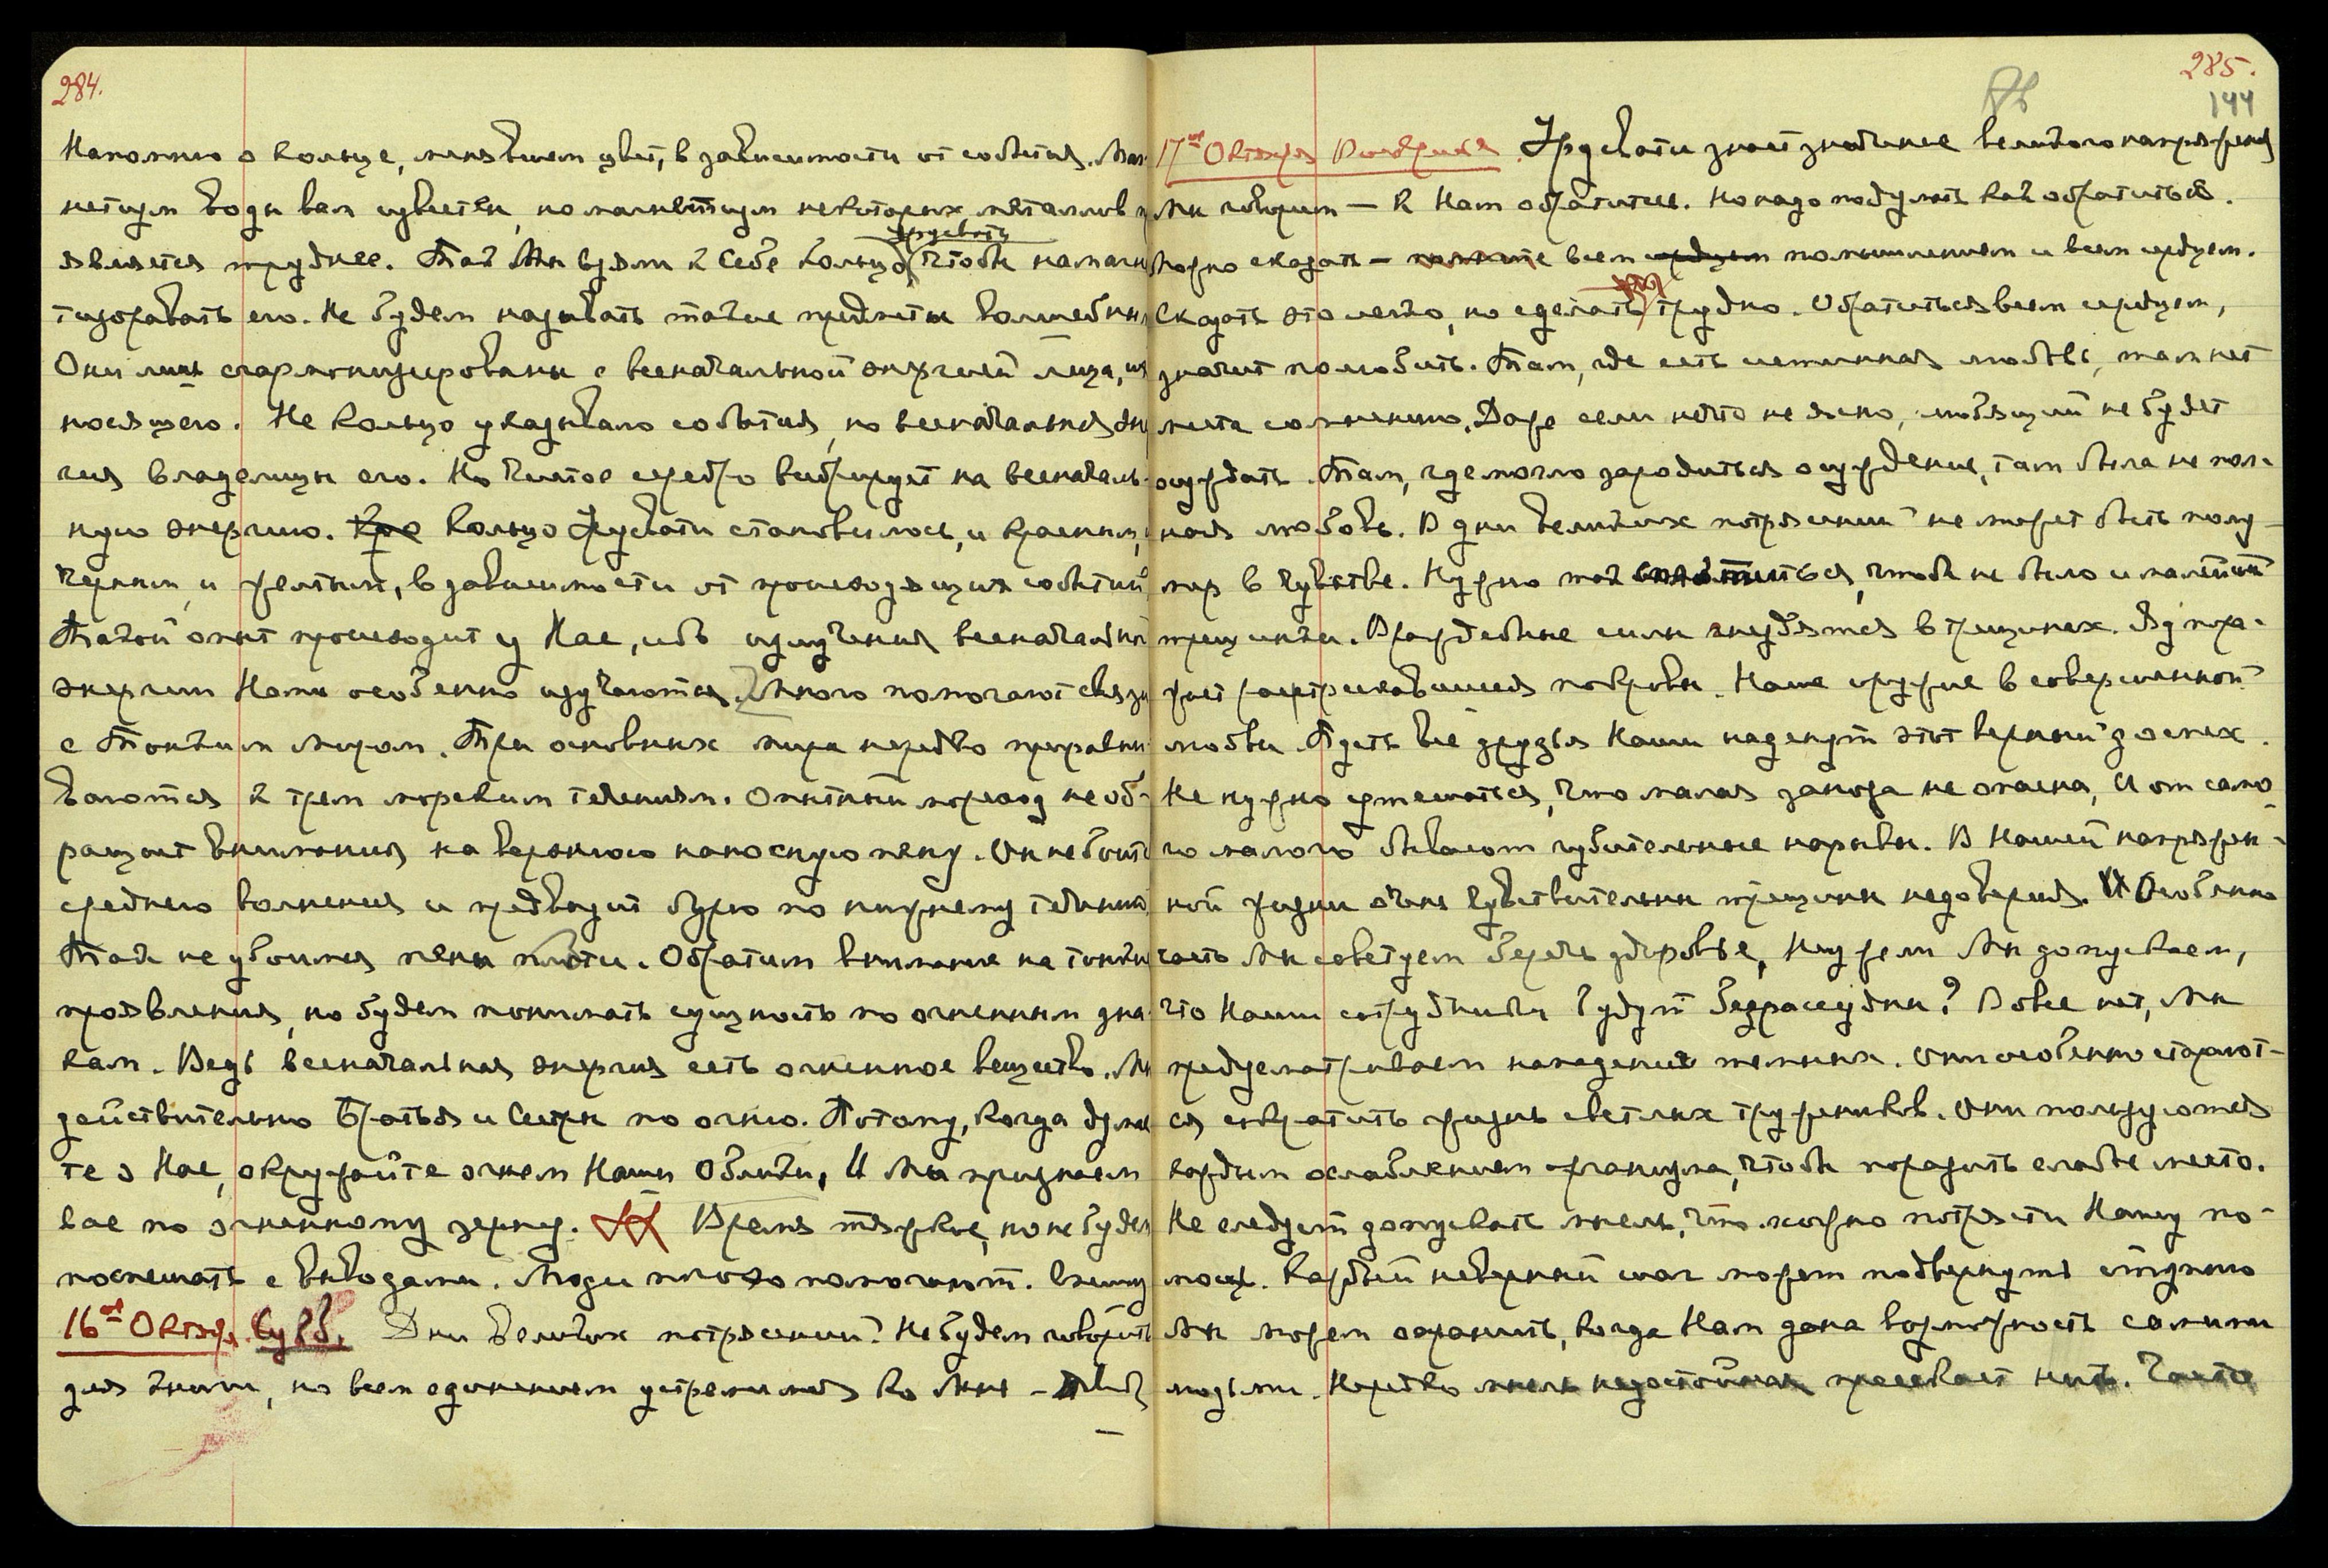 284.
Напомню о кольце, менявшем цвет, в зависимости от события. Маг-
нетизм воды вам известен, но магнетизм некоторых металлов
является труднее. Так Мы взяли к Себе кольцо Урусвати, чтобы намагни-
тизировать его. Не будем называть такие предметы волшебными
Они лишь сгармонизированы с всеначальной энергией лица, их
носящего. Не кольцо указывало события, но всеначальная энер-
гия владелицы его. Но чистое серебро вибрирует на всеначаль-
ную энергию. Кра Кольцо Урусвати становилось, и красным,
черным, и желтым, в зависимости от происходящих событий
Такой опыт происходит у Нас, ибо излучения всеначальной
энергии Нами особенно изучаются. Много помогают связи
с Тонким Миром. Три основных мира нередко приравни-
ваются к трем морским течениям. Опытный мореход не об-
ращает внимания на верхнюю наносную пену. Он не боится
среднего волнения и предвидит бурю по нижнему течению
Так не убоимся пены плоти. Обратим внимание на тонкие
проявления, но будем понимать сущность по огненным зна-
кам. Ведь всеначальная энергия есть огненное вещество. Мы
действительно Братья и Сестры по огню. Потому, когда думае-
те о Нас, окружайте огнем Наши Облики, И Мы признаем
вас по огненному зерну. Время тяжкое, но не будем
поспешать с выводами. Люди плохо помогают.
16ое Октяб. Субб. Дни великих потрясений! Не будем говорить
для книги, но всем единением устремимся ко Мне –
285.
144
17ое Октября Воскресенье. Урусвати знает значение великого напряжения
Мы говорим — к Нам обратитесь. Но надо подумать как обратиться.
Можно сказать — всем сердцем помышлением и всем сердцем.
Сказать это легко, но сделать трудно. Обратиться всем сердцем,
значит полюбить. Там, где есть истинная любовь, там нет
места сомнению. Даже если нечто не ясно, любящий не будет
осуждать. Там, где могло зародиться осуждение, там была не пол-
ная любовь. В дни великих потрясений не может быть полу-
мер в чувстве. Нужно так сплотиться, чтобы не было и малейшей
трещинки. Враждебные силы гнездятся в трещинах. Яд пора-
жает растрескавшиеся покровы. Наше оружие в совершенной
любви. Пусть все друзья Наши наденут этот верный доспех.
Не нужно утешаться, что малая заноза не опасна, И от само-
го малого бывают губительные нарывы. В Нашей напряжен-
ной жизни очень чувствительны трещины недоверия. И Особенно
часто Мы советуем беречь здоровье, Неужели Мы допускаем,
что Наши сотрудники будут безрассудны? Вовсе нет, Мы
предусматриваем нападения темных. Они особенно старают-
ся сократить жизнь светлых тружеников. Они пользуются
каждым ослаблением организма, чтобы поразить слабое место.
Не следует допускать мысль, что можно потрясти Нашу по-
мощь. Каждый неверный шаг может подвернуть ступню
Мы можем охранить, когда Нам дана возможность самими
людьми. Нередко мысль недостойная пресекает нить. Часто